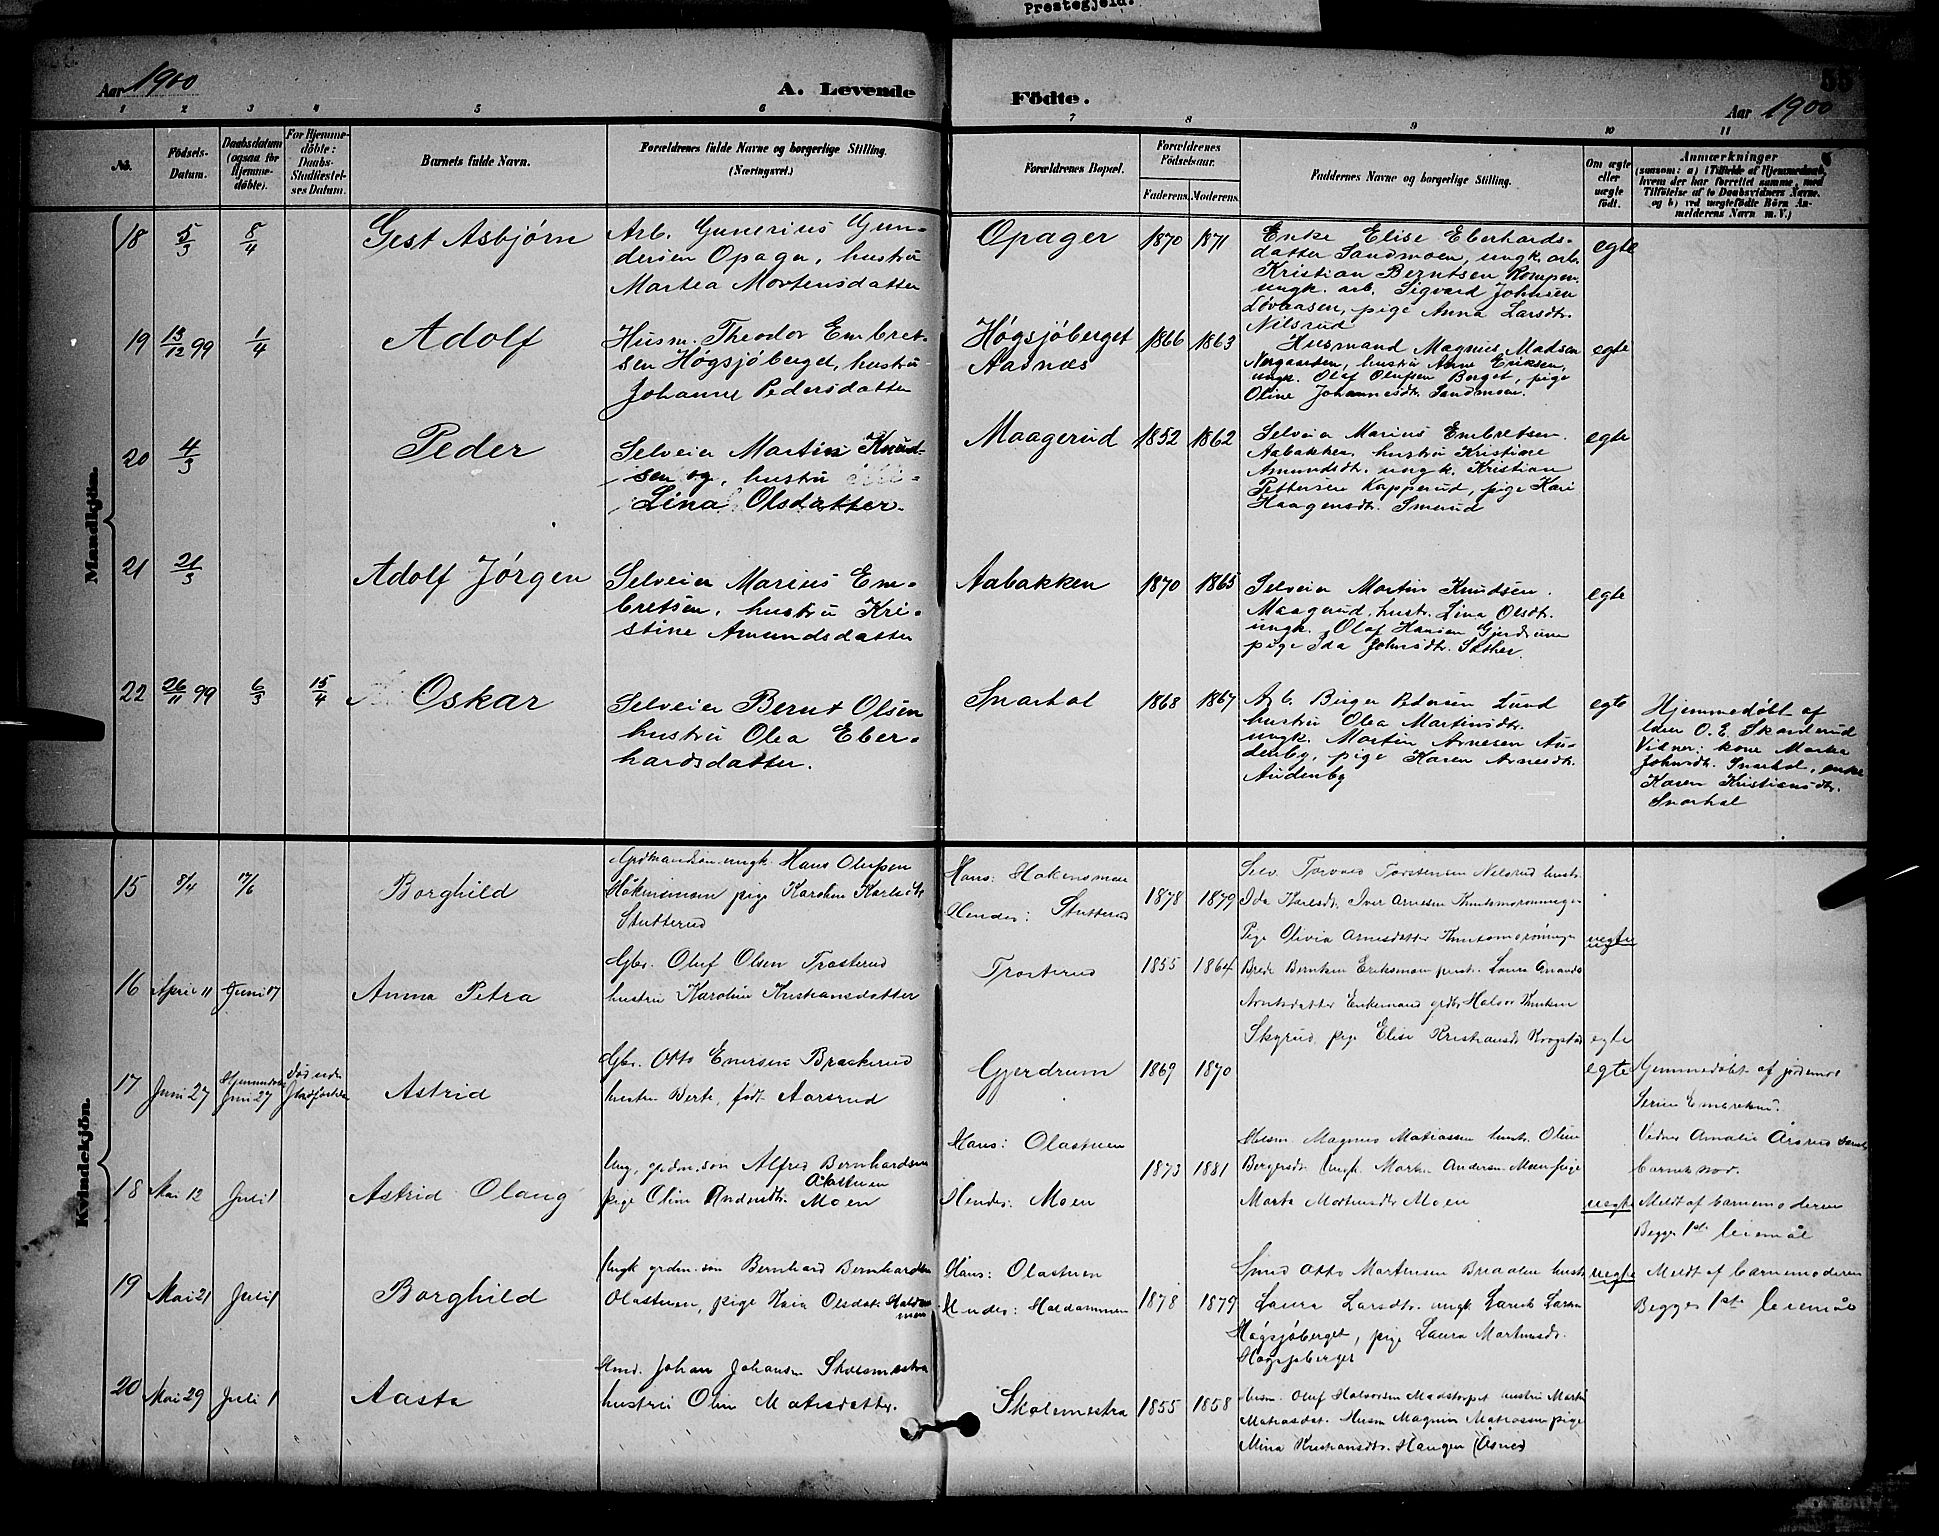 Prestegjeld.
Aar 1900
A. Levende
Födte.
55
Aar 1900
1 2 3 4 5 6 7 8 9 10 11
No.
Födsels-
Datum.
Daabsdatum
(ogsaa for
Hjemme-
döbte).
For Hjemme-
döbte:
Daabs-
Stadfæstel-
ses Datum.
Barnets fulde Navn.
Forældrenes fulde Navne og borgerlige Stilling.
(Næringsvei.)
Forældrenes Bopæl.
Forældrenes
Födselsaar.
Faderens. Moderens.
Faddernes Navne og borgerlige Stilling.
Om ægte
eller
uægte
födt.
Anmærkninger
(saasom: a) i Tilfælde af Hjemmedaab,
hvem der har forrettet samme, med
Tilföielse af to Daabsvidners Navne,
og b) ved uægtefödte Börn An-
melderens Navn m. V.)
Mandkjön.
18 5/3 8/4 Gest Asbjørn
Arb. Gunerius Gun-
dersen Opager, hustru
Martea Mortensdatter
Opager 1870 1871
Enke Elise Eberhards-
datter Sandmoen, ungk. arb.
Kristian Berntsen Rompen
ungk. arb. Sigvard Johnsen
Løvaasen, pige Anna Larsdtr.
Nilsrud
egte
19 13/12 99 1/4 Adolf
Husm. Theodor Embret-
sen Høgsjøberget, hustru
Johanne Pedersdatter
Høgsjøberget
Aasnæs
1866 1863
Husmand Magnus Madsen
Norgaarden, hustru Anne Eriksen,
ungk. Olaf Olufsen Berget, pige
Oline Johannesdtr. Sandmoen.
egte
20 4/3 Peder
Selveier Martin Knud-
sen og, hustru
Lina Olsdatter.
Maagerud 1852 1862
Selveier Marius Embretsen
Aabakken, hustru Kristine
Amundsdtr. ungk. Kristian
Pettersen Kapperud, pige Kari
Haagensdtr. Smerud
egte
21 21/3 Adolf Jørgen
Selveier Marius Em-
bretsen, hustru Kri-
stine Amundsdatter
Aabakken 1870 1865
Selveier Martin Knudsen
Maagerud, hustr. Lina Olsdtr.
ungk. Olaf Hansen Gjerdrum
pige Ida Johnsdtr. Sæther.
egte
22 26/11 99 6/3 15/4 Oskar
Selveier Bernt Olsen
hustru Olea Eber-
hardsdatter.
Snarhol 1868 1867
Arb. Birger Pedersen Lund
hustru Olea Martinsdtr.
ungk. Martin Arnesen Au-
denby, pige Karen Arnesdtr.
Audenby
egte
Hjemmedøbt af
lærer O. E. Skarderud
Vidner: kone Marthe
Johnsdtr. Snarhol, enke
Karen Kristiansdtr.
Snarhol
Kvindekjön.
15 8/4 17/6 Borghild
Grdmandssøn ungk. Hans Olufsen
Håkensmoen pige Karoline Karlsdtr
Stutterud
Hans: Hakensmoen
Hendes: Stutterud
1878 1879
Selv. Torvald Torstensen Nilsrud hustr.
Ida Karlsdt. Iver Arnesen Knutsmorønningen
Pige Olivia Arnesdatter Knutsmorønningen
uegte
16 April 11 Juni 17 Anna Petra
Gbr. Oluf Olsen Trosterud
hustru Karoline Kristiansdatter
Trosterud 1855 1864
Brede Berntsen Eriksmoen hustr. Laura
Arntsdatter Enkemand grdbr Halvor Knutsen
Skyrud pige Elise Kristiansdt Krogstad
egte
17 Juni 27 Hjemmedøbt
Juni 27
død uden
stadfæstelse
Astrid
Gbr. Otto Enersen Braskerud
hustru Berte, født Aarsrud
Gjerdrum 1869 1870
egte
Hjemmedøbt af jordemor
Serine Embretsen.
Vidner Amalie Årsrud samt
barnets mor.
18 Mai 12 Juli 1 Astrid Olaug
Ung. grdm. søn Alfred Bernhardsen
Olastuen
pige Oline Andersdtr. Moen
Hans: Olastuen
Hendes: Moen
1873 1881
Husm. Magnus Matiassen hustr. Oline
Bergersdtr Ungk. Martin Andersen Moen pige
Marta Mortensdtr Moen
uegte
Meldt af barnemoderen
Begges 1ste leiemål
19 Mai 21 Juli 1 Borghild
Ungk grdm. søn Bernhard Bernhardsen
Olastuen, pige Kaia Olsdatr. Holdam-
moen
Hans: Olastuen
Hendes: Holdammen
1878 1879
Smed Otto Martinsen Braaten hustr.
Laura Larsdtr. ungk Laurits Larsen
Høgsjøberget, pige Laura Martinsdtr.
Høgsjøberget
uegte
Meldt af barnemoderen
Begges 1ste leiemål
20 Mai 29 Juli 1 Aasta
Smd. Johan Johansen Skolmestra
hustru Oline Matisdatter.
Skolemestra 1855 1858
Husm. Oluf Halvorsen Madstorpet hustru Marte
Matiasdat. Husm Magnus Matiassen pige
Mina Kristiansdtr. Haugen (Åsnes)